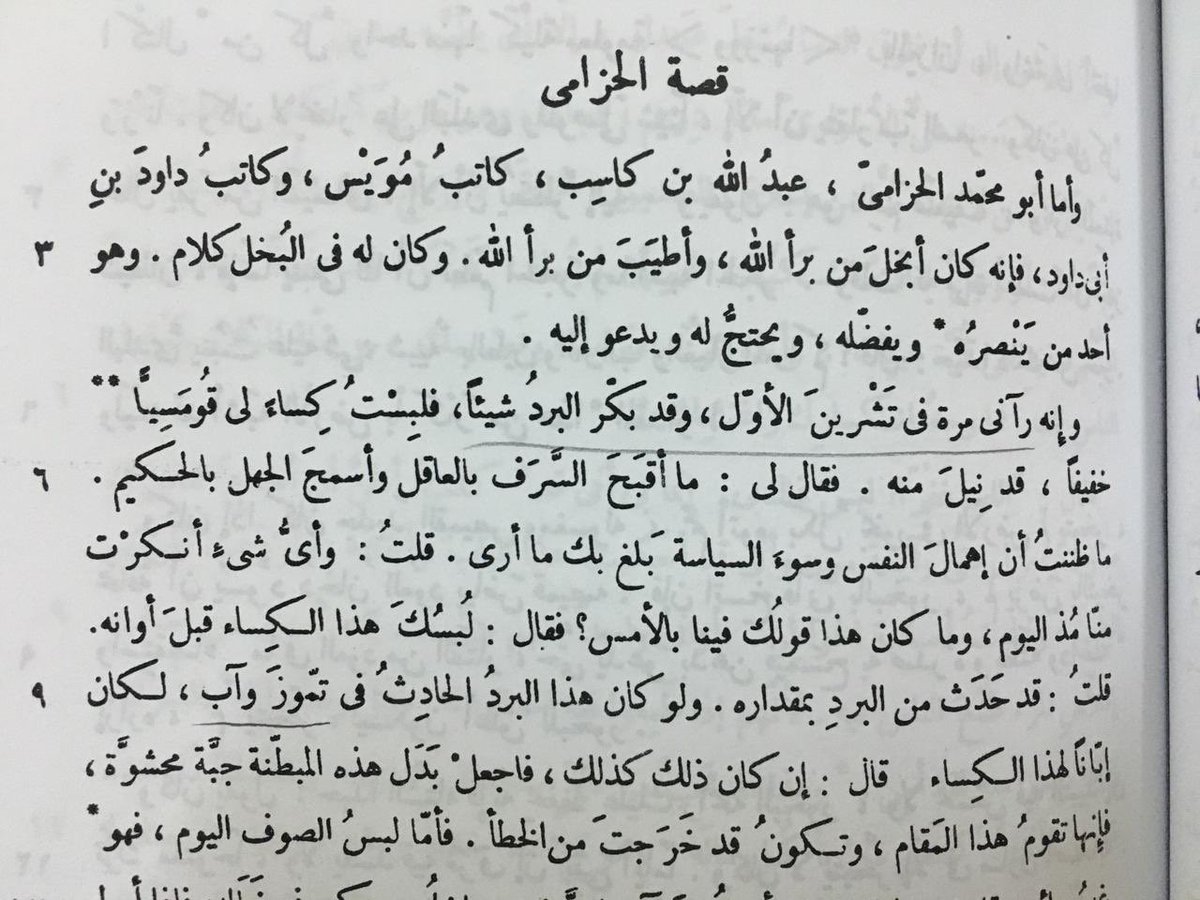 قصة الحزامى
وأما أبو محمّد الحزامىّ ، عبدُ الله بن كاسِب ، كاتبُ مُوَيْس ، وكاتبُ داودَ بنِ
أبى داود ، فإنه كان أبخلَ من برأ الله ، وأطيَبَ من برأ الله . وكان له فى البُخل كلام . وهو ٣
أحد من يَنْصرُه * ويفضّله ، ويحتجُّ له ويدعو إليه .
وإنه رآنى مرة فى تَشْرينَ الأوّل ، وقد بكّر البردُ شيئاً ، فلبِسْتُ كِساءً لى قُومَسِيًّا **
خفيفاً ، قد نِيلَ منه . فقال لى : ما أقبَحَ السَّرَف بالعاقل وأسمجَ الجهل بالحكيم . ٦
ما ظننتُ أن إهمالَ النفس وسوءَ السياسة بَلغ بك ما أرى . قلتُ : وأىُّ شىءٍ أنكرْت
منّا مُذ اليوم ، وما كان هذا قولُك فينا بالأمس ؟ فقال : لُبسُكَ هذا الكِساء قبلَ أوانه .
قلتُ : قد حَدَث من البردِ بمقداره . ولو كان هذا البردُ الحادِثُ فى تمّوزَ وآب ، لكان ٩
إبّانًا لهذا الكِساء قال : إن كان ذلك كذلك ، فاجعلْ بَدَل هذه المبطّنة جبَّة محشوَّة ،
فإنها تقومُ هذا المَقام ، وتكونُ قد خَرَجتَ من الخطأ . فأمّا لبسُ الصوف اليوم ، فهو *